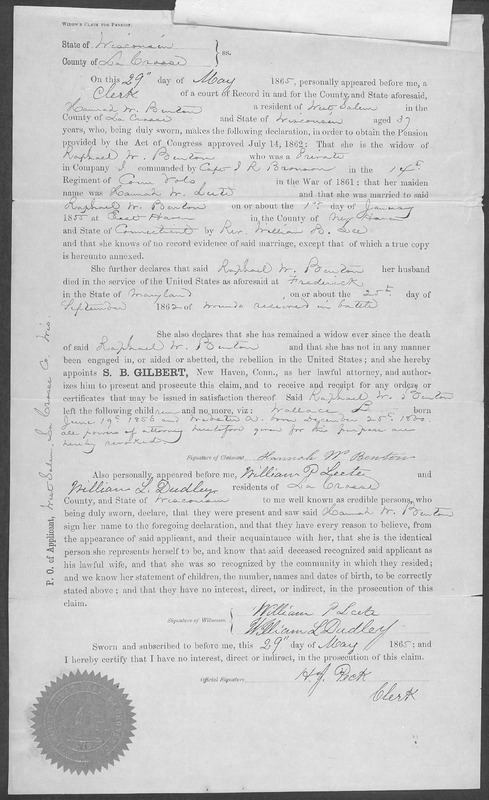 WIDOW'S CLAIM FOR PENSION.
State of Wisconsin
County of La Crosse } ss.
On this 29" day of May 1865, personally appeared before me, a
Clerk of a court of Record in and for the County and State aforesaid,
Hannah W. Benton a resident of West Salem in the
County of La Crosse and State of Wisconsin aged 37
years, who, being duly sworn, makes the following declaration, in order to obtain the Pension
provided by the Act of Congress approved July 14, 1862: That she is the widow of
Raphael W. Benton who was a Private
in Company I commanded by Capt I R Bronson in the 14th
Regiment of Conn Vols in the War of 1861; that her maiden
name was Hannah W. Leete and that she was married to said
Raphael W. Benton on or about the 1st day of January
1855 at East Haven in the County of New Haven
and State of Connecticut by Rev. William B. Lee
and that she knows of no record evidence of said marriage, except that of which a true copy
is hereunto annexed.
She further declares that said Raphael W. Benton her husband
died in the service of the United States as aforesaid at Frederick
in the State of Maryland , on or about the 25th day of
September 1862 of wounds received in battle
She also declares that she has remained a widow ever since the death
of said Raphael W. Benton and that she has not in any manner
been engaged in, or aided or abetted, the rebellion in the United States; and she hereby
appoints S. B. GILBERT, New Haven, Conn., as her lawful attorney, and author-
izes him to present and prosecute this claim, and to receive and receipt for any orders or
certificates that may be issued in satisfaction thereof. Said Raphael W. Benton
left the following children and no more, viz: Wallace born
June 19th 1856 and Webster born December 25th 1860.
all powers of attorney heretofore given for this purpose are
hereby revoked
Signature of Claimant Hannah W Benton
Also personally appeared before me, William P Leete and
William L. Dudley residents of La Crosse
County, and State of Wisconsin to me well known as credible persons, who
being duly sworn, declare, that they were present and saw said Hannah W. Benton
sign her name to the foregoing declaration, and that they have every reason to believe, from
the appearance of said applicant, and their acquaintance with her, that she is the identical
person she represents herself to be, and know that said deceased recognized said applicant as
his lawful wife, and that she was so recognized by the community in which they resided;
and we know her statement of children, the number, names and dates of birth, to be correctly
stated above; and that they have no interest, direct or indirect, in the prosecution of this
claim.
Signature of Witnesses { William P Leete
William L Dudley
Sworn and subscribed to before me, this 29" day of May 1865; and
I hereby certify that I have no interest, direct or indirect, in the prosecution of this claim.
Official Signature H. J. Peck
Clerk
P. O. of Applicant, West Salem, La Crosse Co. Wis.